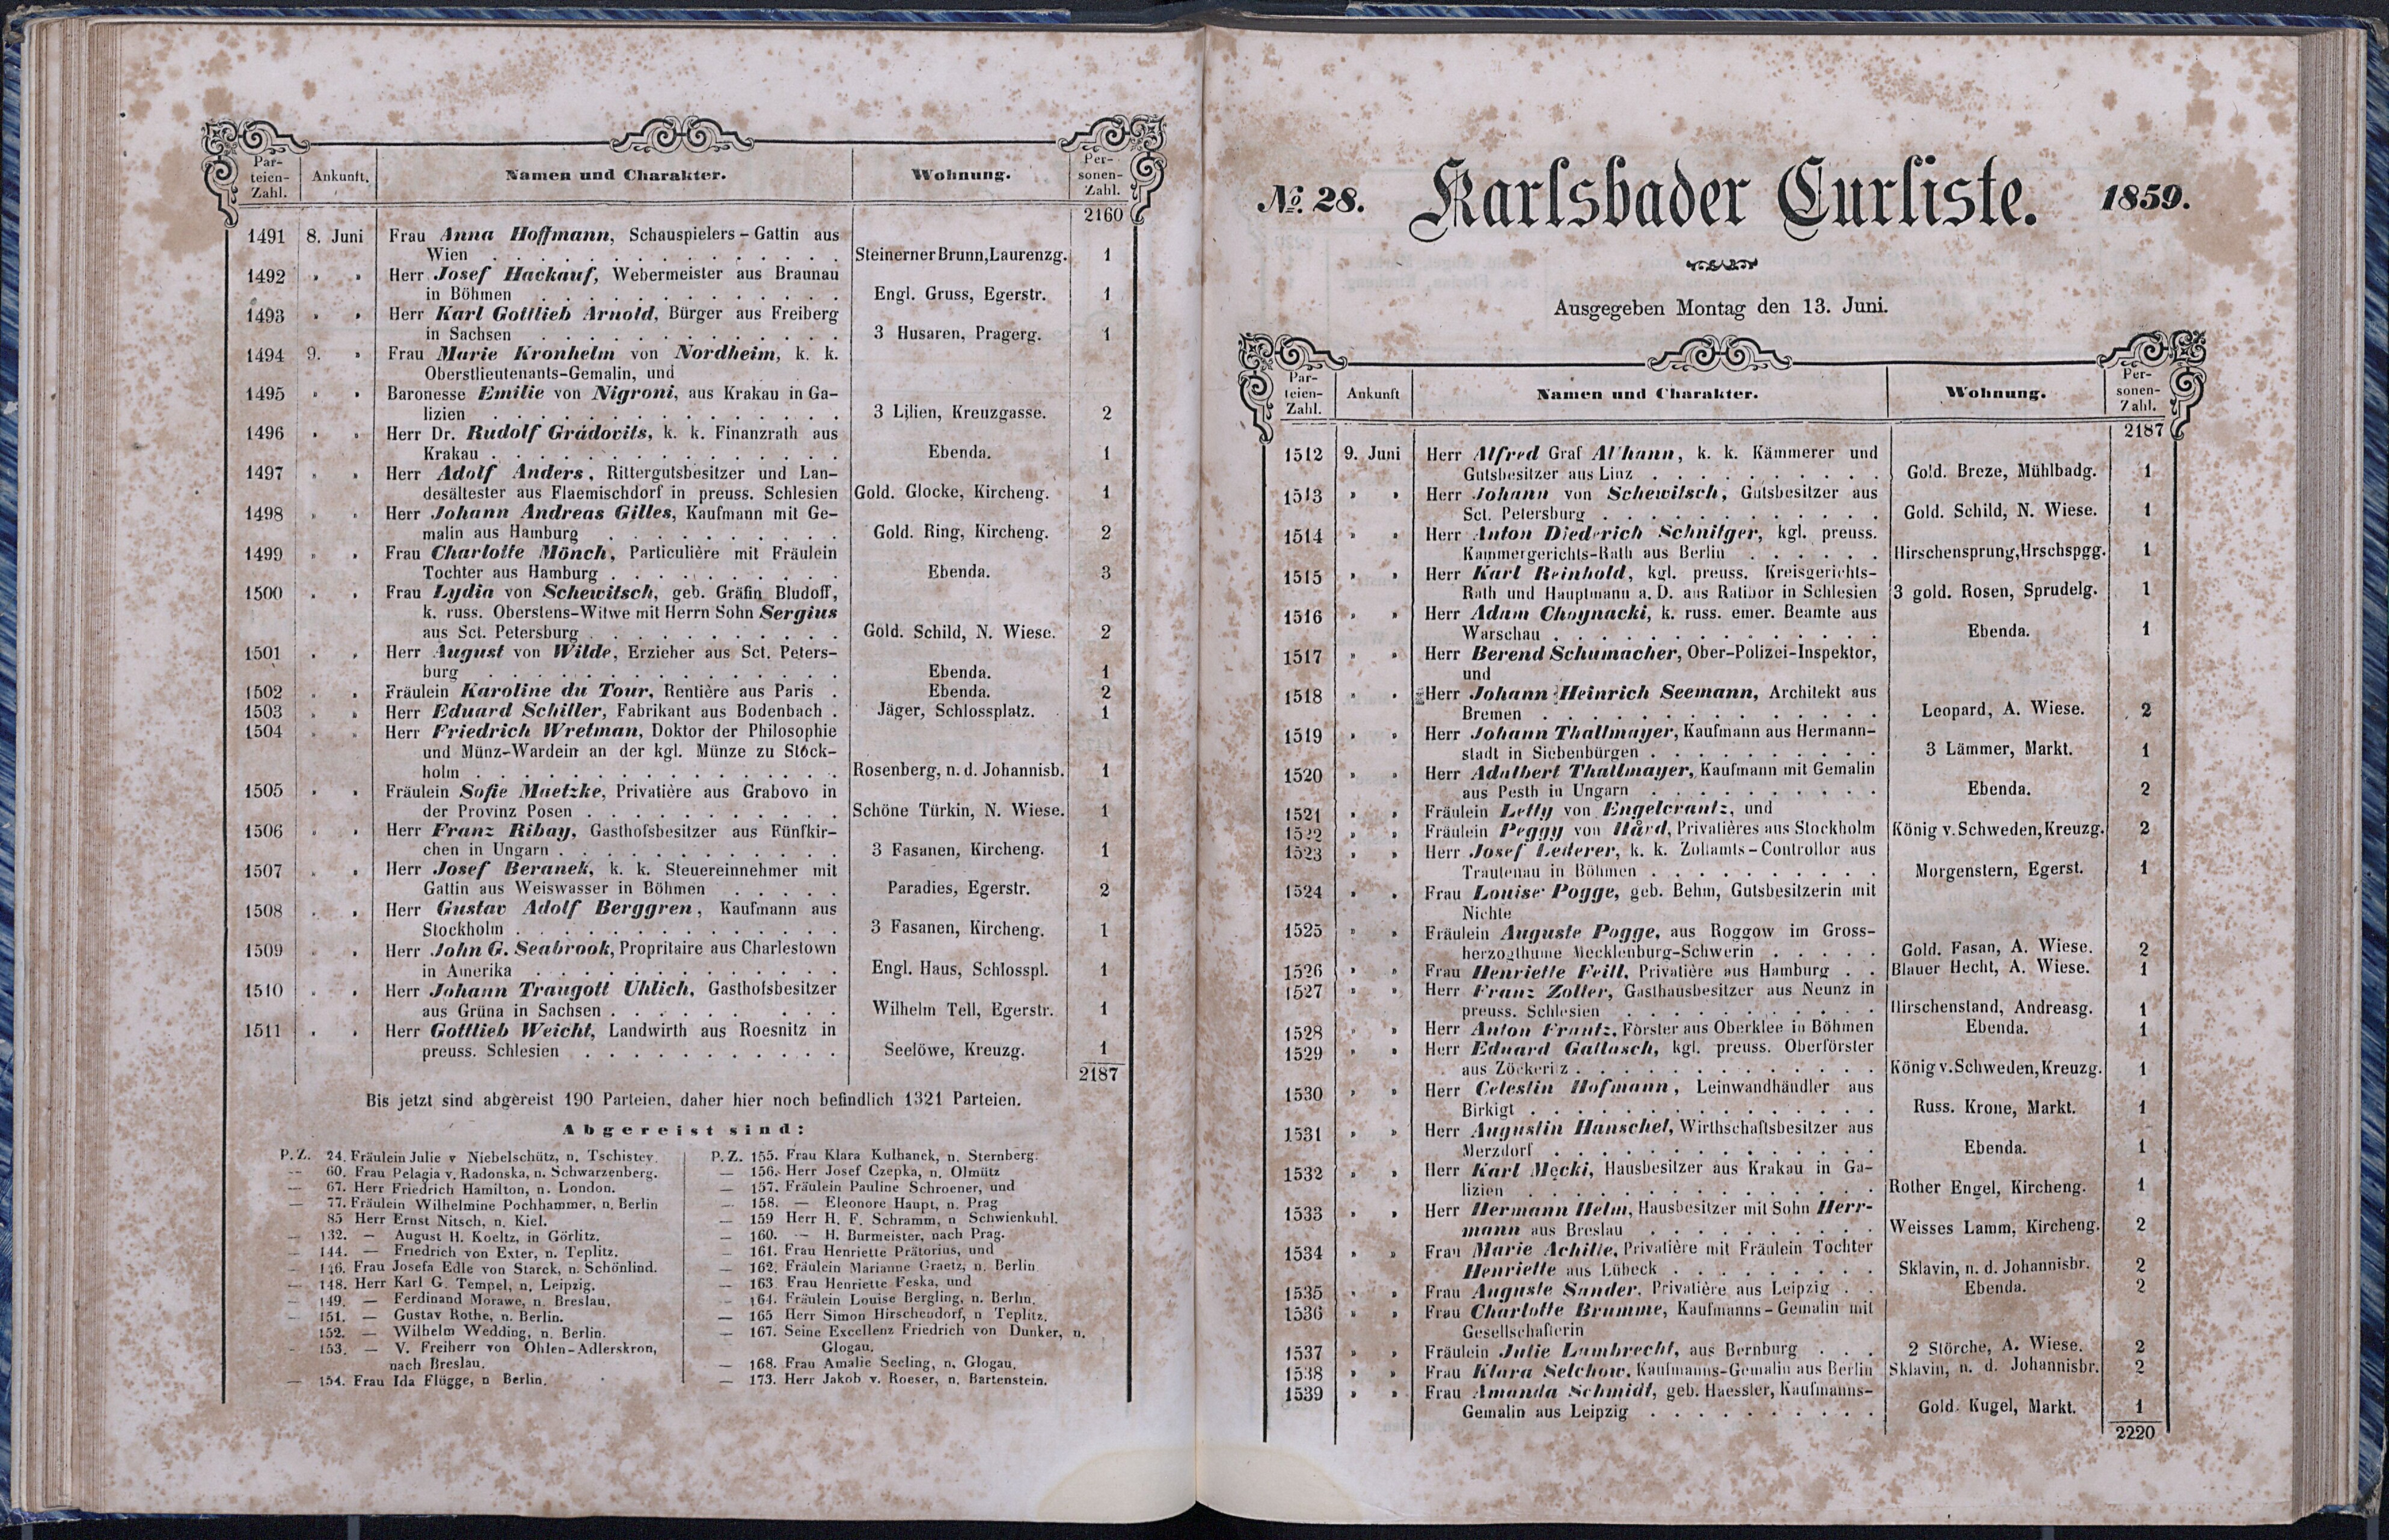 Par-
teien-
Zahl.
Ankunft.
Namen und Charakter.
Wohnung.
Per-
sonen-
Zahl.
2160
1491 8. Juni Frau Anna Hoffmann, Schauspielers-Gattin aus
Wien . . . Steinerner Brunn, Laurenzg. 1
1492 „ „ Herr Josef Hackauf, Webermeister aus Braunau
in Böhmen . . . Engl. Gruss, Egerstr. 1
1493 „ „ Herr Karl Gottlieb Arnold, Bürger aus Freiberg
in Sachsen . . . 3 Husaren, Pragerg. 1
1494 9. „ Frau Marie Kronhelm von Nordheim, k. k.
Oberstlieutenants-Gemalin, und
1495 „ „ Baronesse Emilie von Nigroni, aus Krakau in Ga-
lizien . . . 3 Lilien, Kreuzgasse. 2
1496 „ „ Herr Dr. Rudolf Grádovits, k. k. Finanzrath aus
Krakau . . . Ebenda. 1
1497 „ „ Herr Adolf Anders, Rittergutsbesitzer und Lan-
desältester aus Flaemischdorf in preuss. Schlesien Gold. Glocke, Kircheng. 1
1498 „ „ Herr Johann Andreas Gilles, Kaufmann mit Ge-
malin aus Hamburg . . . Gold. Ring, Kircheng. 2
1499 „ „ Frau Charlotte Mönch, Particulière mit Fräulein
Tochter aus Hamburg . . . Ebenda. 3
1500 „ „ Frau Lydia von Schewitsch, geb. Gräfin Bludoff,
k. russ. Oberstens-Witwe mit Herrn Sohn Sergius
aus Sct. Petersburg . . . Gold. Schild, N. Wiese. 2
1501 „ „ Herr August von Wilde, Erzieher aus Sct. Peters-
burg . . . Ebenda. 1
1502 „ „ Fräulein Karoline du Tour, Rentière aus Paris . Ebenda. 2
1503 „ „ Herr Eduard Schiller, Fabrikant aus Bodenbach . Jäger, Schlossplatz. 1
1504 „ „ Herr Friedrich Wretman, Doktor der Philosophie
und Münz-Wardein an der kgl. Münze zu Stock-
holm . . . Rosenberg, n. d. Johannisb. 1
1505 „ „ Fräulein Sofie Maetzke, Privatière aus Grabovo in
der Provinz Posen . . . Schöne Türkin, N. Wiese. 1
1506 „ „ Herr Franz Ribay, Gasthofsbesitzer aus Fünfkir-
chen in Ungarn . . . 3 Fasanen, Kircheng. 1
1507 „ „ Herr Josef Beranek, k. k. Steuereinnehmer mit
Gattin aus Weiswasser in Böhmen . . . Paradies, Egerstr. 2
1508 „ „ Herr Gustav Adolf Berggren, Kaufmann aus
Stockholm . . . 3 Fasanen, Kircheng. 1
1509 „ „ Herr John G. Seabrook, Propritaire aus Charlestown
in Amerika . . . Engl. Haus, Schlosspl. 1
1510 „ „ Herr Johann Traugott Uhlich, Gasthofsbesitzer
aus Grüna in Sachsen . . . Wilhelm Tell, Egerstr. 1
1511 „ „ Herr Gottlieb Weicht, Landwirth aus Roesnitz in
preuss. Schlesien . . . Seelöwe, Kreuzg. 1
2187
Bis jetzt sind abgereist 190 Parteien, daher hier noch befindlich 1321 Parteien.
Abgereist sind:
P.Z. 24. Fräulein Julie v Niebelschütz, n. Tschistey.
— 60. Frau Pelagia v. Radonska, n. Schwarzenberg.
— 67. Herr Friedrich Hamilton, n. London.
— 77. Fräulein Wilhelmine Pochhammer, n. Berlin
85 Herr Ernst Nitsch, n. Kiel.
— 132. — August H. Koeltz, in Görlitz.
— 144. — Friedrich von Exter, n. Teplitz.
— 146. Frau Josefa Edle von Starck, n. Schönlind.
— 148. Herr Karl G. Tempel, n. Leipzig.
— 149. — Ferdinand Morawe, n. Breslau.
— 151. — Gustav Rothe, n. Berlin.
152. — Wilhelm Wedding, n. Berlin.
- 153. — V. Freiherr von Ohlen-Adlerskron,
nach Breslau.
— 154. Frau Ida Flügge, n Berlin.
P.Z. 155. Frau Klara Kulhanek, n. Sternberg.
— 156. Herr Josef Czepka, n. Olmütz
— 157. Fräulein Pauline Schroener, und
— 158. — Eleonore Haupt, n. Prag
— 159 Herr H. F. Schramm, n Schwienkuhl.
— 160. — H. Burmeister, nach Prag.
— 161. Frau Henriette Prätorius, und
— 162. Fräulein Marianne Graetz, n. Berlin
— 163 Frau Henriette Feska, und
— 164. Fräulein Louise Bergling, n. Berlin.
— 165 Herr Simon Hirschendorf, n Teplitz.
— 167. Seine Excellenz Friedrich von Dunker, n.
Glogau.
— 168. Frau Amalie Seeling, n. Glogau.
— 173. Herr Jakob v. Roeser, n. Bartenstein.
No. 28. Karlsbader Curliste. 1859.
Ausgegeben Montag den 13. Juni.
Par-
teien-
Zahl.
Ankunft
Namen und Charakter.
Wohnung.
Per-
sonen-
Zahl.
2187
1512 9. Juni Herr Alfred Graf Althann, k. k. Kämmerer und
Gutsbesitzer aus Linz . . . Gold. Breze, Mühlbadg. 1
1513 „ „ Herr Johann von Schewitsch, Gutsbesitzer aus
Sct. Petersburg . . . Gold. Schild, N. Wiese. 1
1514 „ „ Herr Anton Diederich Schnitger, kgl. preuss.
Kammergerichts-Rath aus Berlin . . . Hirschensprung, Hrschspgg. 1
1515 „ „ Herr Karl Reinhold, kgl. preuss. Kreisgerichts-
Rath und Hauptmann a. D. aus Ratibor in Schlesien 3 gold. Rosen, Sprudelg. 1
1516 „ „ Herr Adam Choynacki, k. russ. emer. Beamte aus
Warschau . . . Ebenda. 1
1517 „ „ Herr Berend Schumacher, Ober-Polizei-Inspektor,
und
1518 „ „ Herr Johann Heinrich Seemann, Architekt aus
Bremen . . . Leopard, A. Wiese. 2
1519 „ „ Herr Johann Thallmayer, Kaufmann aus Hermann-
stadt in Siebenbürgen . . . 3 Lämmer, Markt. 1
1520 „ „ Herr Adalbert Thallmayer, Kaufmann mit Gemalin
aus Pesth in Ungarn . . . Ebenda. 2
1521 „ „ Fräulein Letty von Engelcrantz, und
1522 „ „ Fräulein Peggy von Hård, Privatières aus Stockholm König v. Schweden, Kreuzg. 2
1523 „ „ Herr Josef Lederer, k. k. Zollamts-Controllor aus
Trautenau in Böhmen . . . Morgenstern, Egerst. 1
1524 „ „ Frau Louise Pogge, geb. Behm, Gutsbesitzerin mit
Nichte
1525 „ „ Fräulein Auguste Pogge, aus Roggow im Gross-
herzogthume Mecklenburg-Schwerin . . . Gold. Fasan, A. Wiese. 2
1526 „ „ Frau Henriette Feill, Privatière aus Hamburg . . Blauer Hecht, A. Wiese. 1
1527 „ „ Herr Franz Zoller, Gasthausbesitzer aus Neunz in
preuss. Schlesien . . . Hirschenstand, Andreasg. 1
1528 „ „ Herr Anton Frantz, Förster aus Oberklee in Böhmen Ebenda. 1
1529 „ „ Herr Eduard Gallasch, kgl. preuss. Oberförster
aus Zöckeritz . . . König v. Schweden, Kreuzg. 1
1530 „ „ Herr Celestin Hofmann, Leinwandhändler aus
Birkigt . . . Russ. Krone, Markt. 1
1531 „ „ Herr Augustin Hanschel, Wirthschaftsbesitzer aus
Merzdorf . . . Ebenda. 1
1532 „ „ Herr Karl Męcki, Hausbesitzer aus Krakau in Ga-
lizien . . . Rother Engel, Kircheng. 1
1533 „ „ Herr Hermann Helm, Hausbesitzer mit Sohn Herr-
mann aus Breslau . . . Weisses Lamm, Kircheng. 2
1534 „ „ Frau Marie Achille, Privatière mit Fräulein Tochter
Henriette aus Lübeck . . . Sklavin, n. d. Johannisbr. 2
1535 „ „ Frau Auguste Sander, Privatière aus Leipzig . . Ebenda. 2
1536 „ „ Frau Charlotte Brumme, Kaufmanns-Gemalin mit
Gesellschafterin
1537 „ „ Fräulein Julie Lambrecht, aus Bernburg . . . 2 Störche, A. Wiese. 2
1538 „ „ Frau Klara Selchow, Kaufmanns-Gemalin aus Berlin Sklavin, n. d. Johannisbr. 2
1539 „ „ Frau Amanda Schmidt, geb. Haessler, Kaufmanns-
Gemalin aus Leipzig . . . Gold. Kugel, Markt. 1
2220